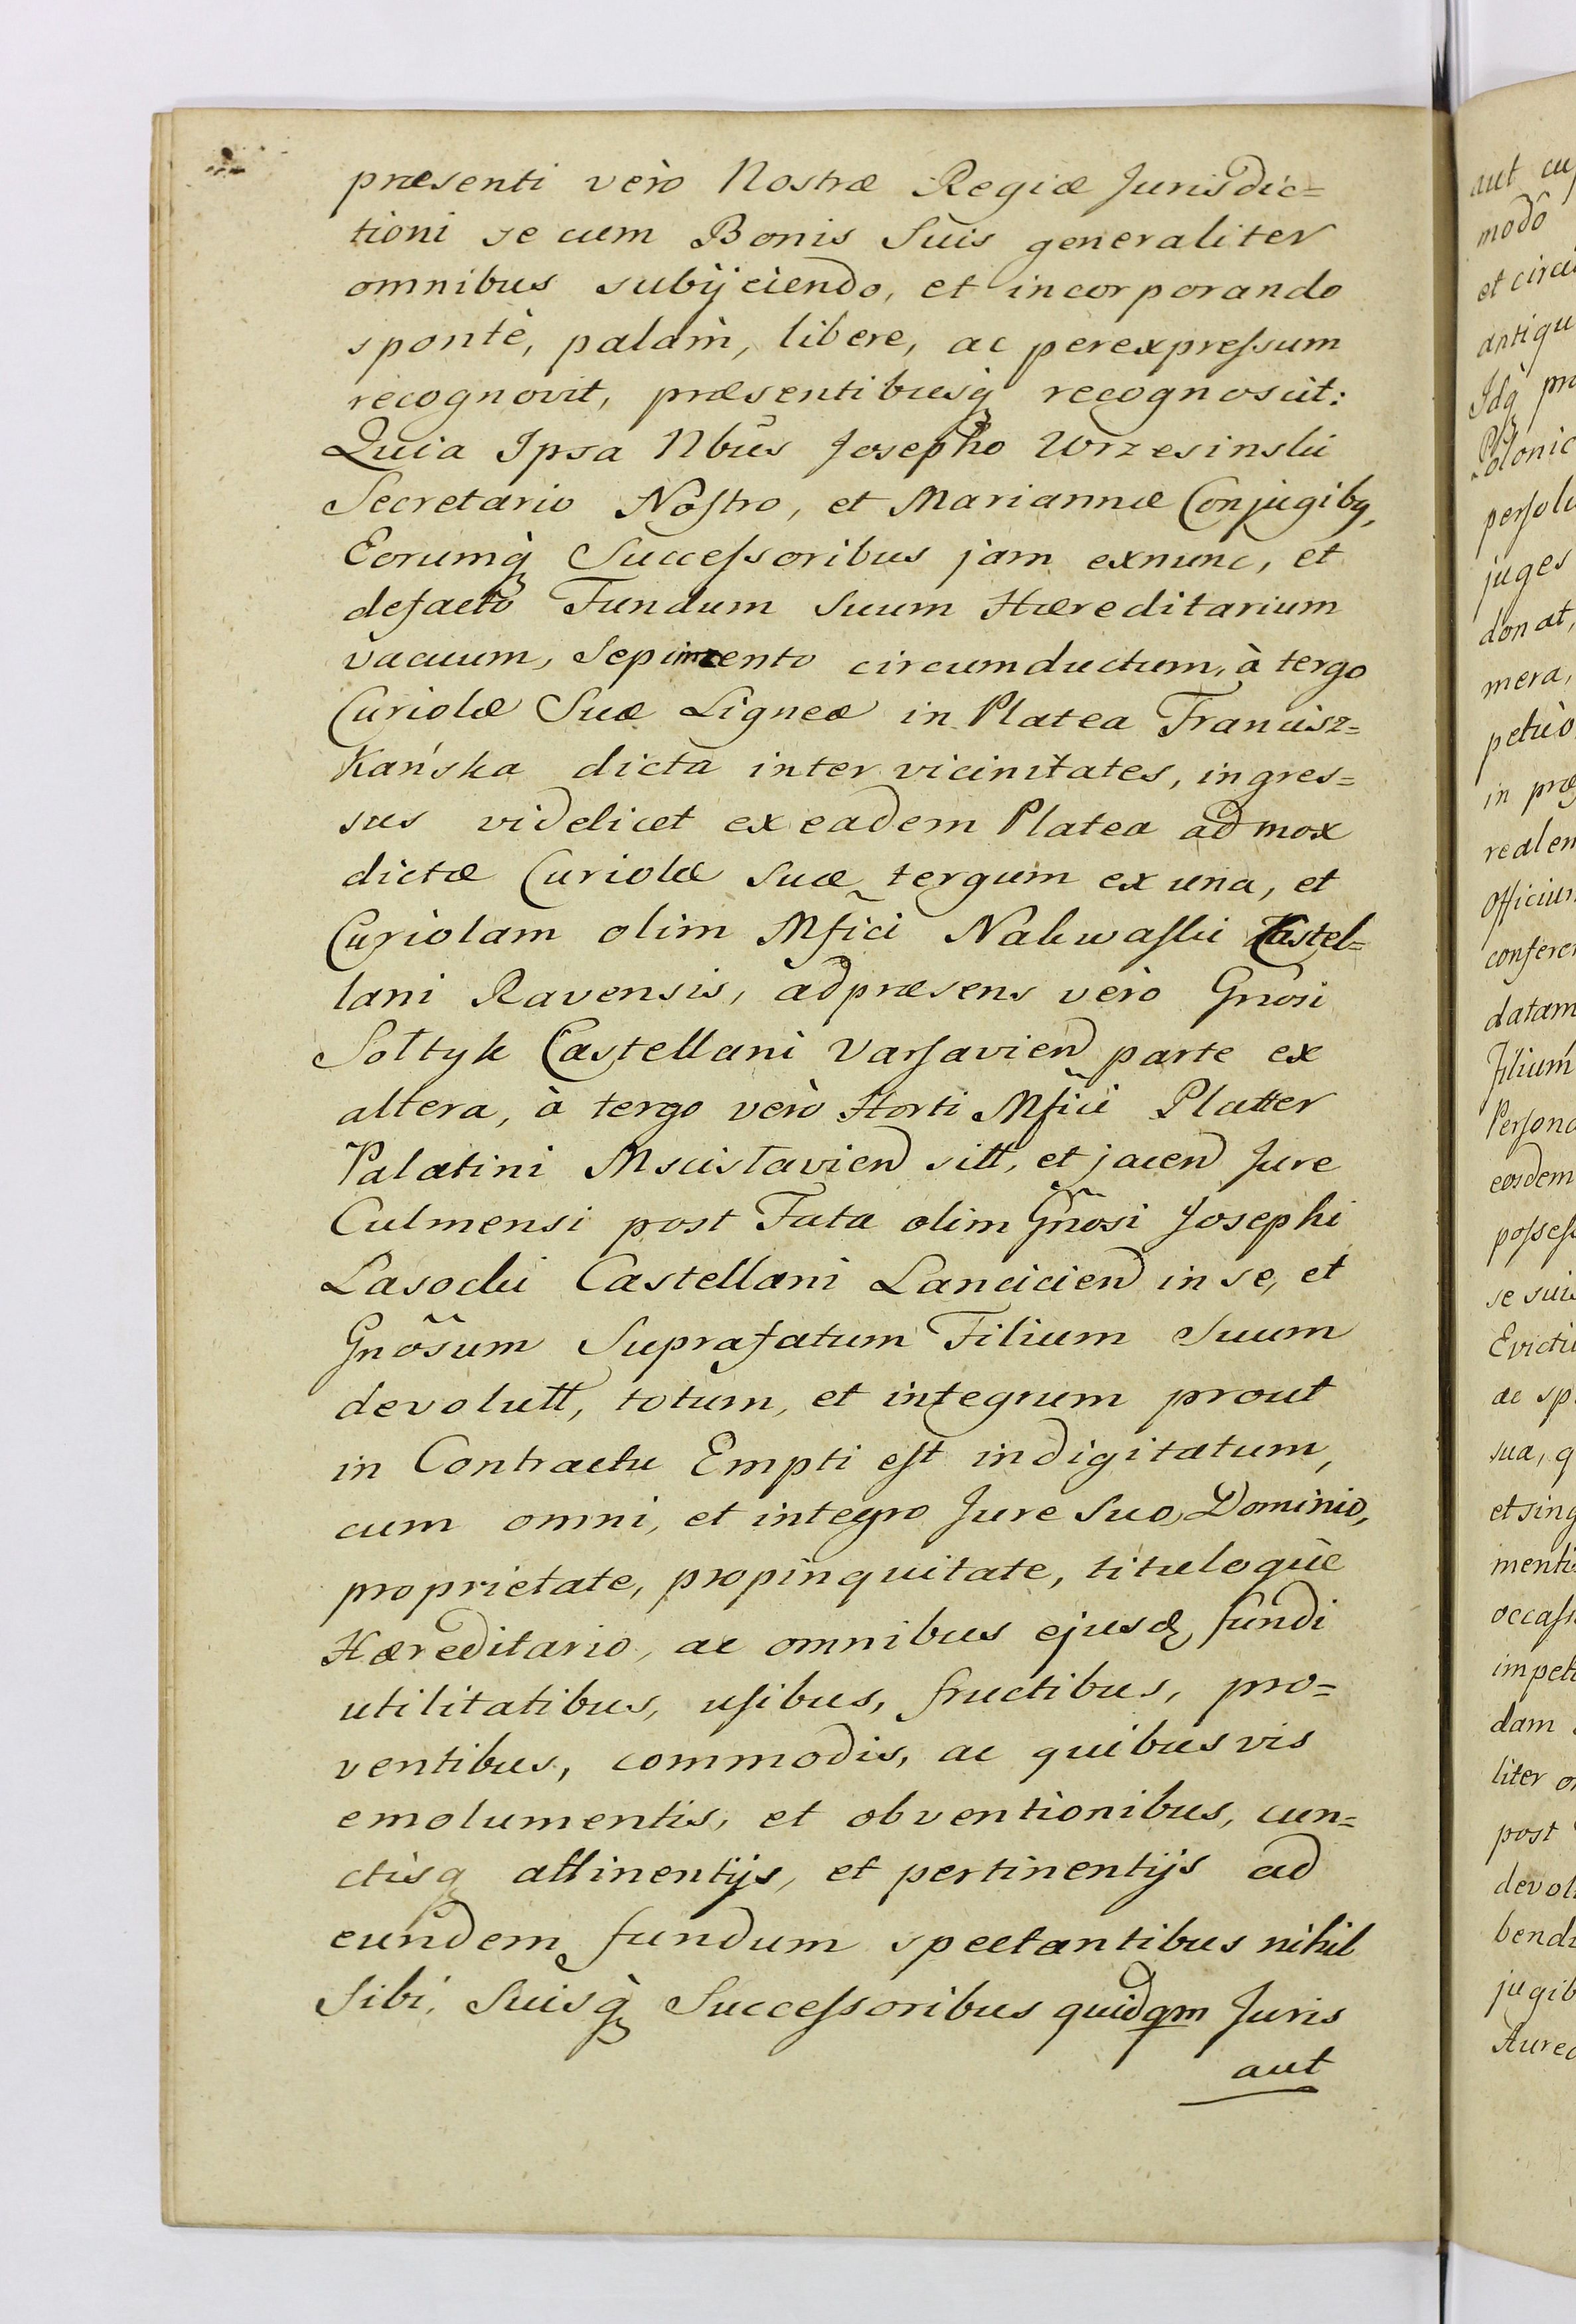 præsenti verò Nostræ Regiæ Jurisdic=
tioni se cum Bonis Suis generaliter
omnibus subijciendo, et incorporando
spontè, palàm, libere, ac per expreſsum
recognovit, præsentibusq̀ recognoscit:
Quia Ipsa Nbũs Josepho Wrzesinski
Secretario Noſtro, et Mariannæ Conjugibq,
Eorumq̀ Succeſsoribus jam exnunc, et
defacto Fundum Suum Hæreditarium
vacuum, Sepimento circumductum, à tergo
Curiolæ Suæ Ligneæ in Platea Francisz=
kańska dicta inter vicinitates, ingres=
sus videlicet ex eadem Platea ad mox
dictæ Curiolæ suæ tergum ex una, et
Curiolam olim Mfici Nakwaſki Castel=
lani Ravensis, ad præsens verò Gnõsi
Sołtyk Castellani Varſavien parte ex
altera, à tergo verò Horti Mfici Platter
Palatini Mscisłavien sitt, et jacen Jure
Culmensi post Fata olim Gñosi Josephi
Lasocki Castellani Lancicien in se, et
Gnõsum Suprafatum Filium Suum
devolutt, totum, et integrum prout
in Contractu Empti eſt indigitatum,
cum omni, et integro Jure Suo, Dominio,
proprietate, propinquitate, tituloquè
Hæreditario, ac omnibus ejusd fundi
utilitatibus, uſibus, fructibus, pro=
ventibus, commodis, ac quibusvis
emolumentis, et obventionibus, cun=
ctisq attinentijs, et pertinentijs ad
eundem fundum spectantibus nihil
Sibi, Suisq̀ Succeſsoribus quidqm Juris
aut
aut cu
modò
et circu
antiqu
Idq̀ pr
Polonic
perſolu
juges
donat,
mera,
petuò
in præ
realem
Officiu
confere
datam
Filium
Perſona
eosdem
poſseſs
se suis
Evicti
ac sp
sua, q
et sing
mentis
occaſi
impet
dam
liter o
post
devol
bend
jugib
Aure